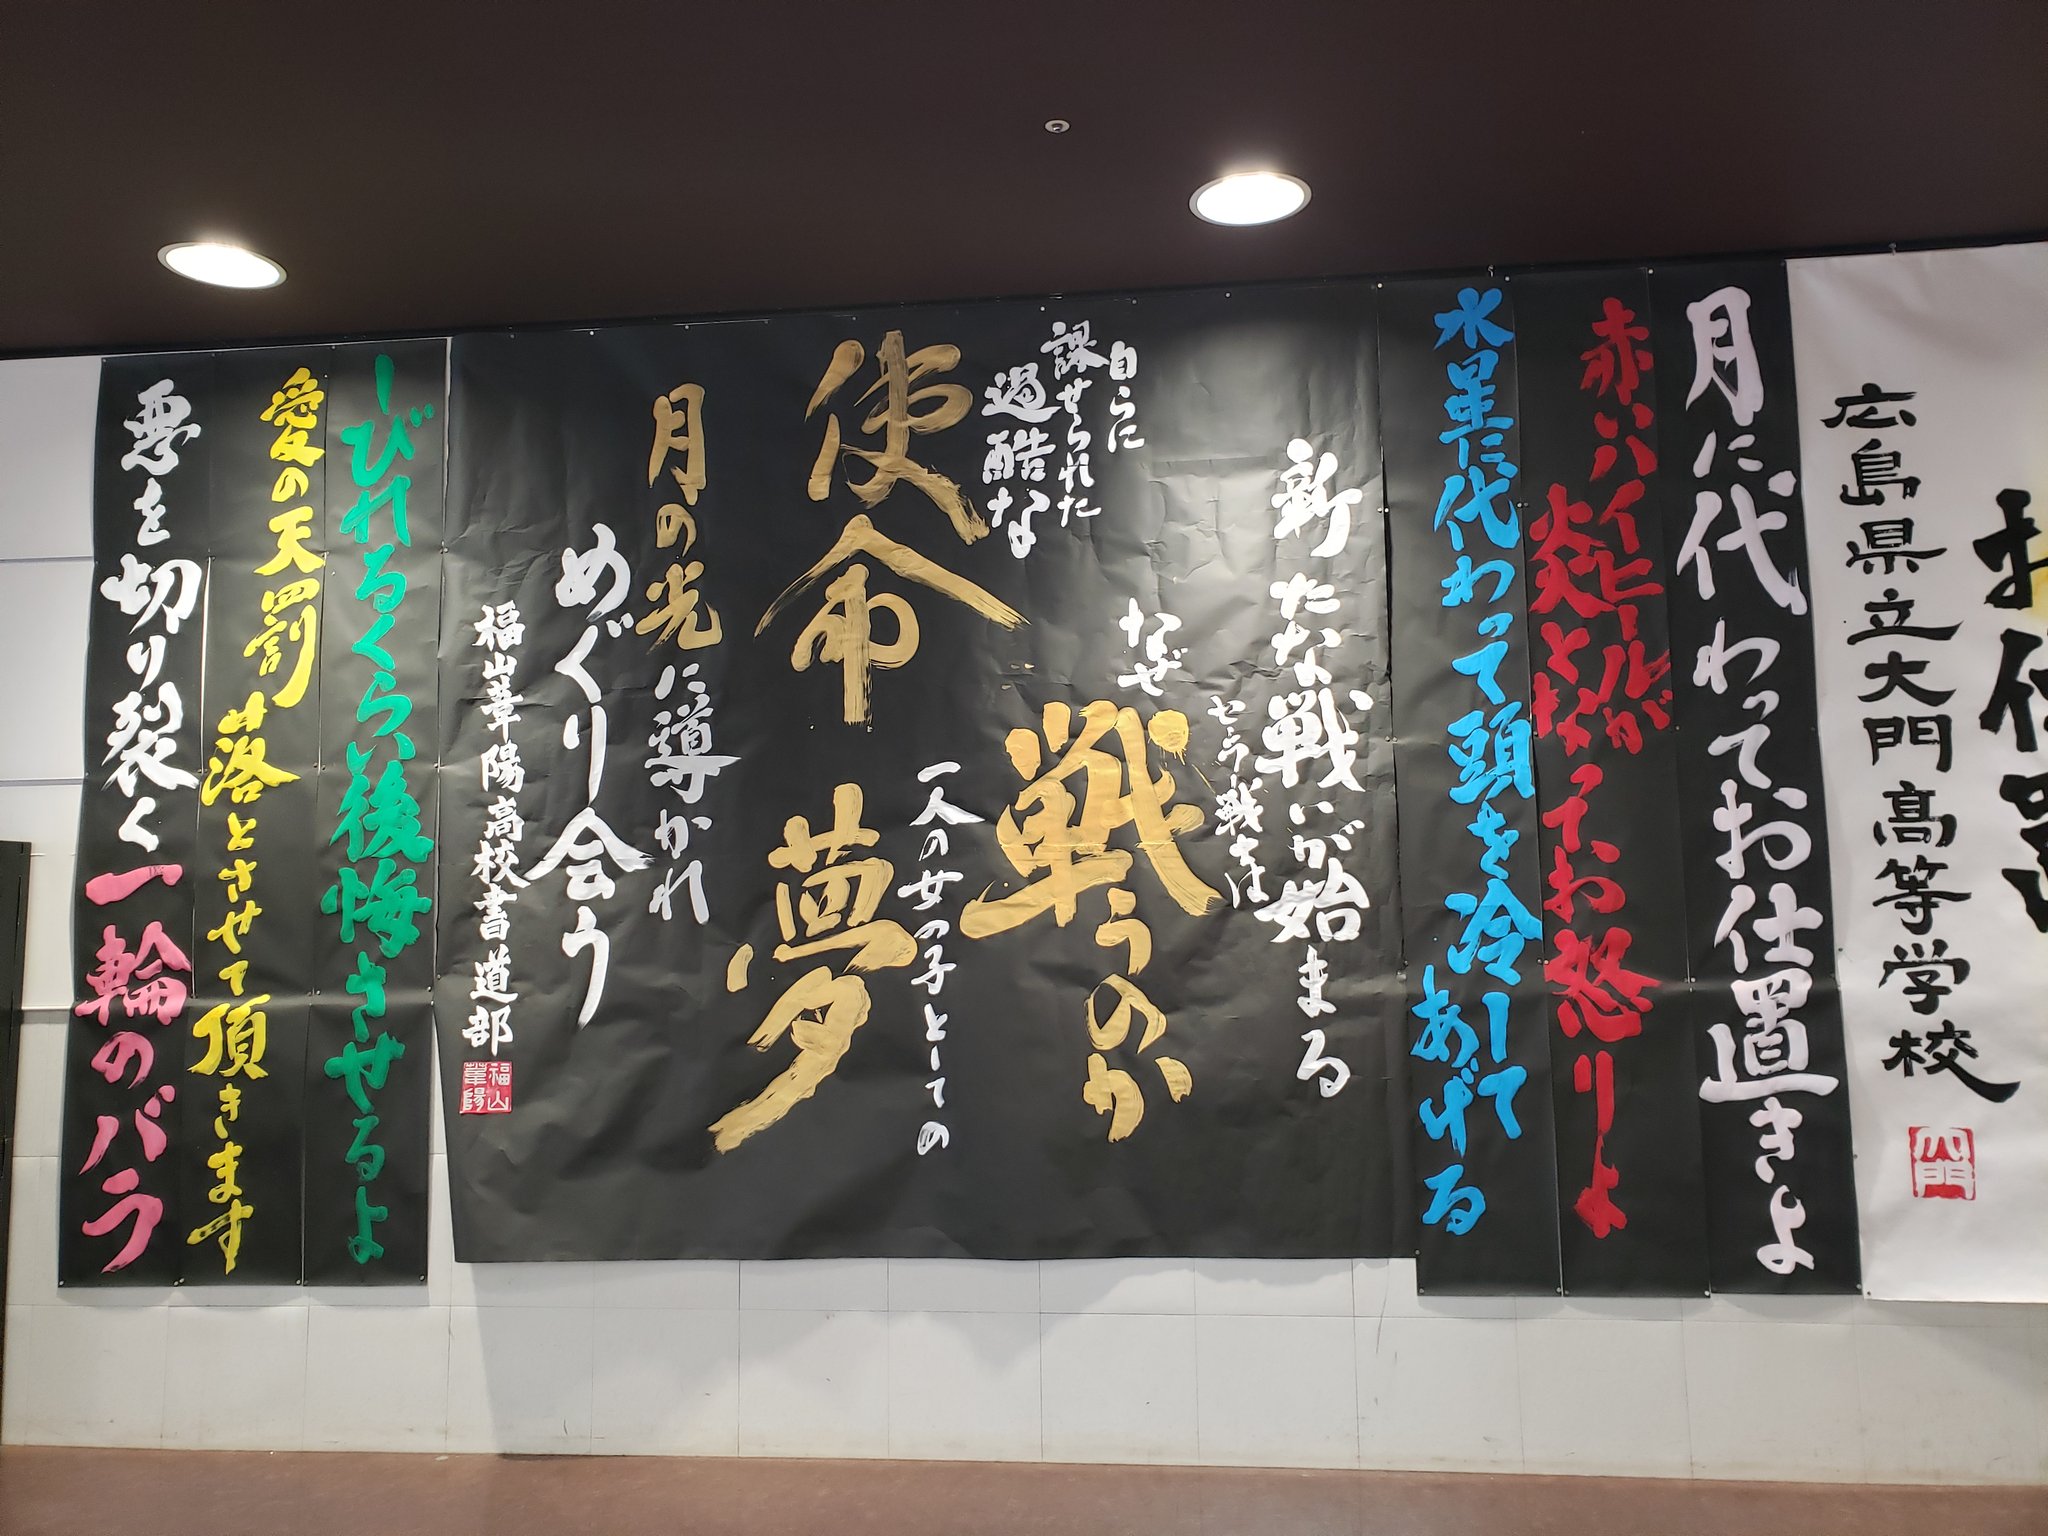 広島県立大門高等学校
大門
月に代わってお仕置きよ
赤いハイヒールが
炎となっておお怒りよ
水星に代わって頭を冷して
あげる
新たな戦いが始まる
セーラー戦士は
なぜ
戦うのか
自らに
課せられた
過酷な
使命
一人の女の子としての
夢
月の光に導かれ
めぐり会う
福山葦陽高校書道部
福山
葦陽
しびれるくらい後悔させるよ
愛の天罰
落とさせて頂きます
悪を切り裂く一輪のバラ